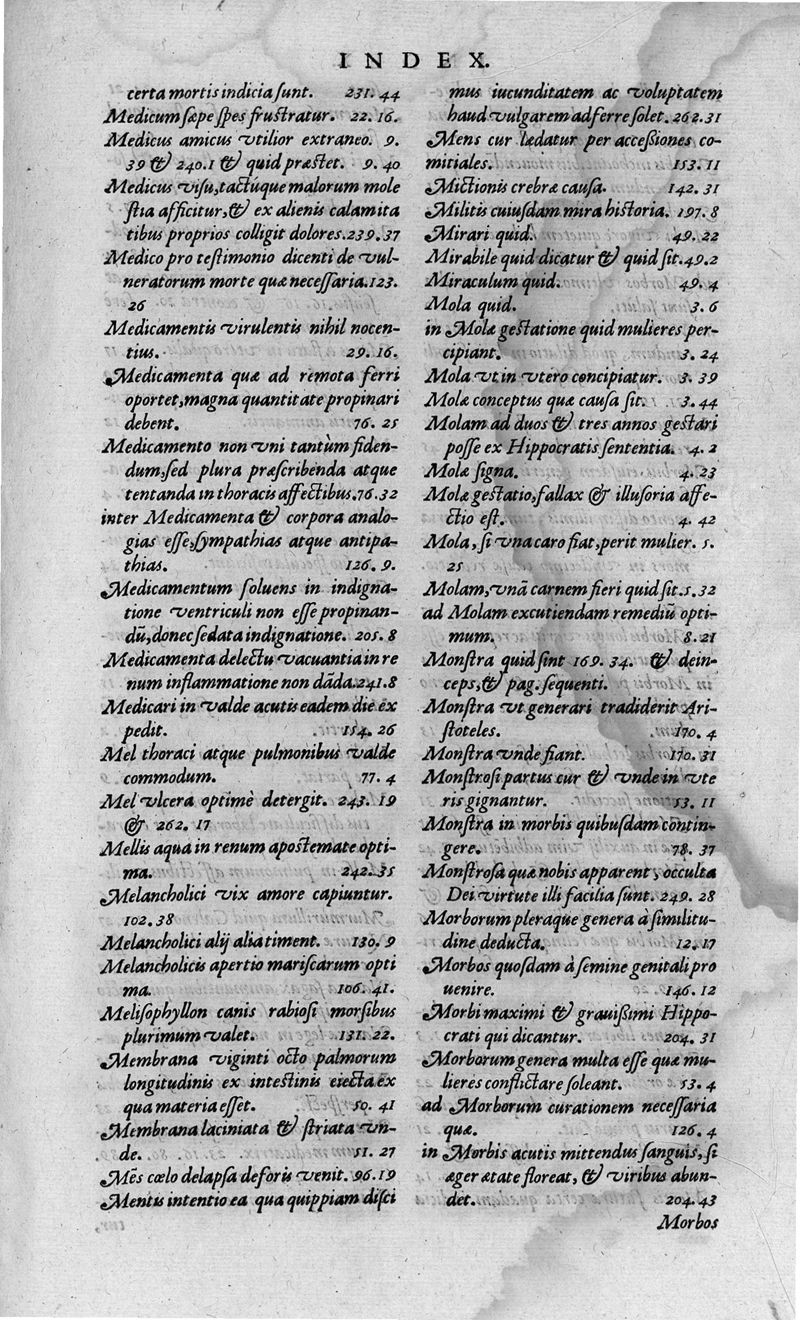 INDEX.
certa mortis indicia ſunt. 231. 44
Medicum ſæpe ſpes fruſtratur. 22. 16.
Medicus amicus vtilior extraneo. 9.
39 & 240.1 & quid præſtet. 9. 40
Medicus viſu, tactuque malorum mole
ſtia afficitur, & ex alienis calamita
tibus proprios colligit dolores. 239. 37
Medico pro teſtimonio dicenti de vul-
neratorum morte quæ neceſſaria. 123.
26
Medicamentis virulentis nihil nocen-
tius. 29. 16.
Medicamenta quæ ad remota ferri
oportet, magna quantitate propinari
debent. 76. 25
Medicamento non vni tantùm fiden-
dum, ſed plura præſcribenda atque
tentanda in thoracis affectibus. 76. 32
inter Medicamenta & corpora analo-
gias eſſe, ſympathias atque antipa-
thias. 126. 9.
Medicamentum ſoluens in indigna-
tione ventriculi non eſſe propinan-
dū, donec ſedata indignatione. 205. 8
Medicamenta delectu vacuantia in re
num inflammatione non dāda. 241. 8
Medicari in valde acutis eadem die ex
pedit. 154. 26
Mel thoraci atque pulmonibus valde
commodum. 77. 4
Mel vlcera optimè detergit. 243. 19
& 262. 17
Mellis aqua in renum apoſtemate opti-
ma. 242. 35
Melancholici vix amore capiuntur.
102. 38
Melancholici alij alia timent. 130. 9
Melancholicis apertio mariſcarum opti
ma. 106. 41.
Meliſophyllon canis rabioſi morſibus
plurimum valet. 131. 22.
Membrana viginti octo palmorum
longitudinis ex inteſtinis eiecta ex
qua materia eſſet. 50. 41
Membrana laciniata & ſtriata vn-
de. 51. 27
Mēs cœlo delapſa deforis venit. 96. 19
Mentis intentio ea qua quippiam diſci
mus iucunditatem ac voluptatem
haud vulgarem adferre ſolet. 262. 31
Mens cur lædatur per acceſſiones co-
mitiales. 153. 11
Mictionis crebræ cauſa. 142. 31
Militis cuiuſdam mira hiſtoria. 197. 8
Mirari quid. 49. 22
Mirabile quid dicatur & quid ſit. 49. 2
Miraculum quid. 49. 4
Mola quid. 3. 6
in Molæ geſtatione quid mulieres per-
cipiant. 3. 24
Mola vt in vtero concipiatur. 3. 39
Molæ conceptus quæ cauſa ſit. 3. 44
Molam ad duos & tres annos geſtari
poſſe ex Hippocratis ſententia. 4. 2
Molæ ſigna. 4. 23
Molæ geſtatio, fallax & illuſoria affe-
ctio eſt. 4. 42
Mola, ſi vna caro fiat, perit mulier. 5.
25
Molam, vnā carnem fieri quid ſit. 5. 32
ad Molam excutiendam remediū opti-
mum. 8. 21
Monſtra quid ſint 169. 34. & dein-
ceps, & pag. ſequenti.
Monſtra vt generari tradiderit Ari-
ſtoteles. 170. 4
Monſtra vnde fiant. 170. 31
Monſtroſi partus cur & vnde in vte
ris gignantur. 53. 11
Monſtra in morbis quibuſdam contin-
gere. 78. 37
Monſtroſa quæ nobis apparent, occulta
Dei virtute illi facilia ſunt. 249. 28
Morborum pleraque genera à ſimilitu-
dine deducta. 12. 17
Morbos quoſdam à ſemine genitali pro
uenire. 146. 12
Morbi maximi & grauiſſimi Hippo-
crati qui dicantur. 204. 31
Morborum genera multa eſſe quæ mu-
lieres conflictare ſoleant. 53. 4
ad Morborum curationem neceſſaria
quæ. 126. 4
in Morbis acutis mittendus ſanguis, ſi
æger ætate floreat, & viribus abun-
det. 204. 43
Morbos